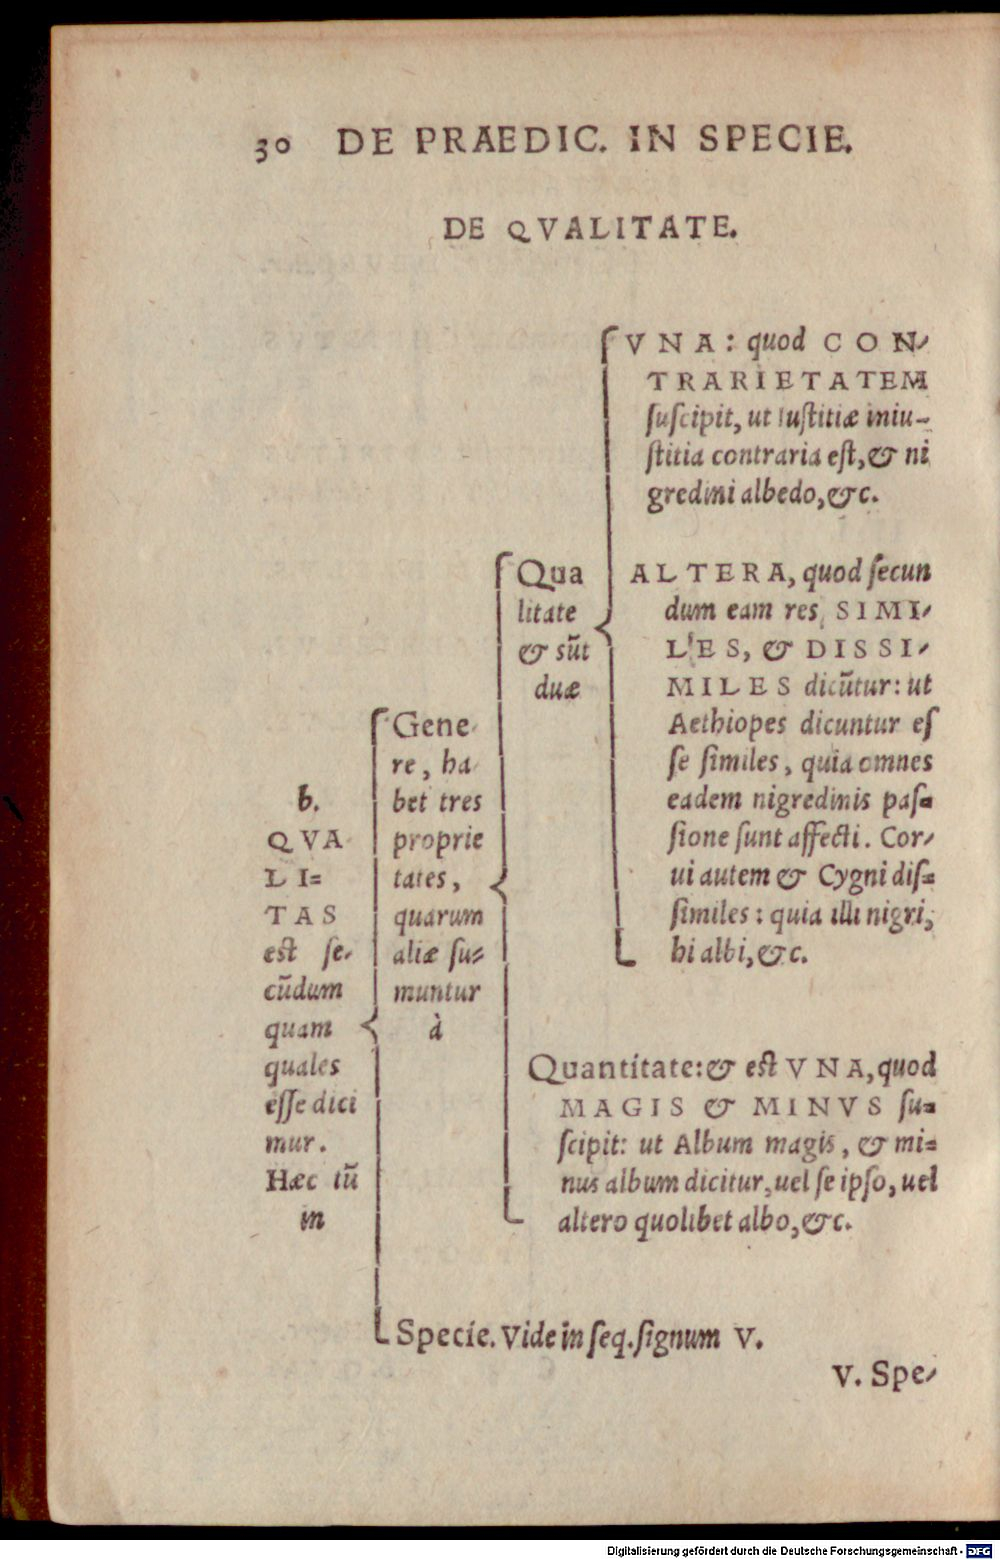 30 DE PRAEDIC. IN SPECIE.
DE QVALITATE.
b.
QVA
LI=
TAS
est se-
cūdum
quam
quales
esse dici
mur.
Hæc tū
in
Gene-
re, ha
bet tres
proprie
tates,
quarum
aliæ su=
muntur
à
Qua
litate
& sūt
duæ
VNA: quod CON-
TRARIETATEM
suscipit, ut Iustitiæ iniu-
stitia contraria est, & ni
gredini albedo, &c.
ALTERA, quod secun
dum eam res, SIMI-
LES, & DISSI-
MILES dicūtur: ut
Aethiopes dicuntur es
se similes, quia omnes
eadem nigredinis pas=
sione sunt affecti. Cor-
ui autem & Cygni dis=
similes: quia illi nigri,
hi albi, &c.
Quantitate: & est VNA, quod
MAGIS & MINVS su=
scipit: ut Album magis, & mi=
nus album dicitur, uel se ipso, uel
altero quolibet albo, &c.
Specie. Vide in seq. signum V.
V. Spe-
Digitalisierung gefördert durch die Deutsche Forschungsgemeinschaft - DFG